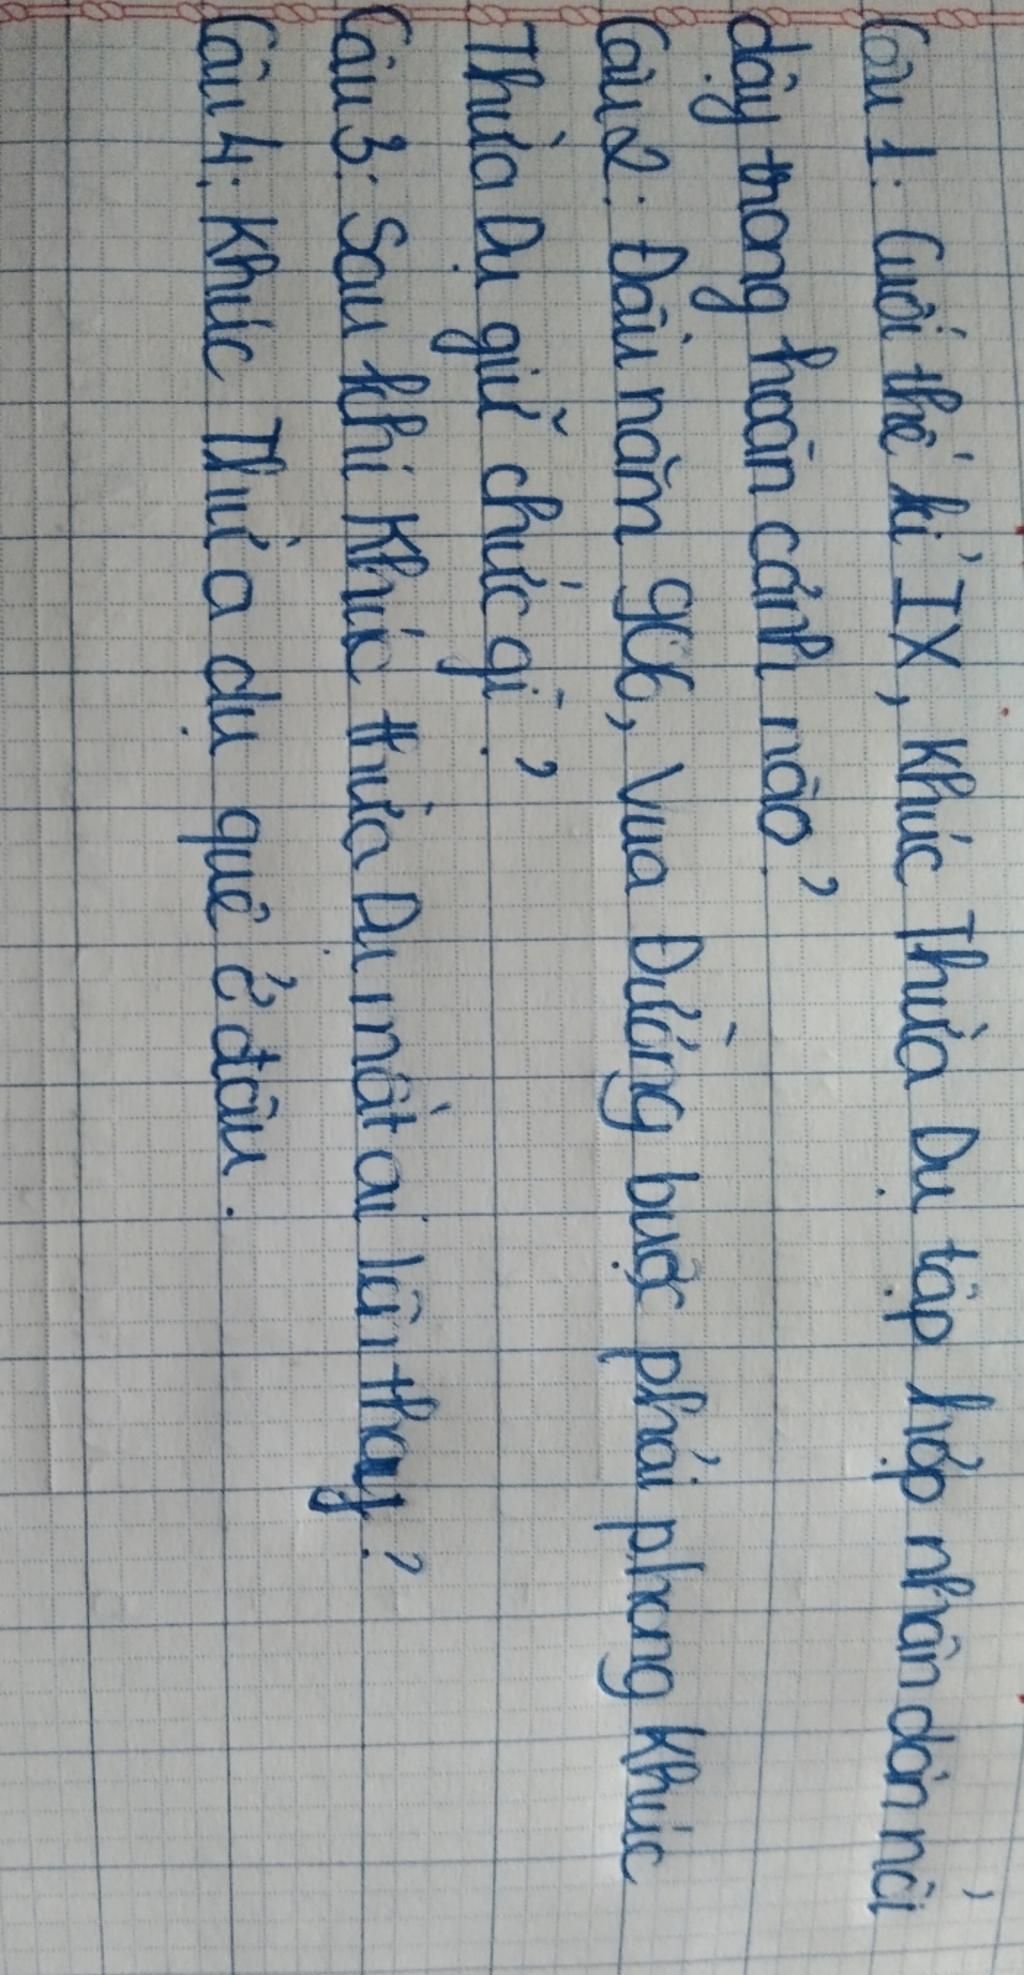 Câu 1: Cuối thế kỉ IX, Khúc Thừa Dụ tập hợp nhân dân nổi
dậy trong hoàn cảnh nào?
Câu 2: Đầu năm 906, vua Đường buộc phải phong Khúc
Thừa Dụ giữ chức gì?
Câu 3: Sau khi Khúc thừa Dụ mất ai lên thay?
Câu 4: Khúc Thừa dụ quê ở đâu.